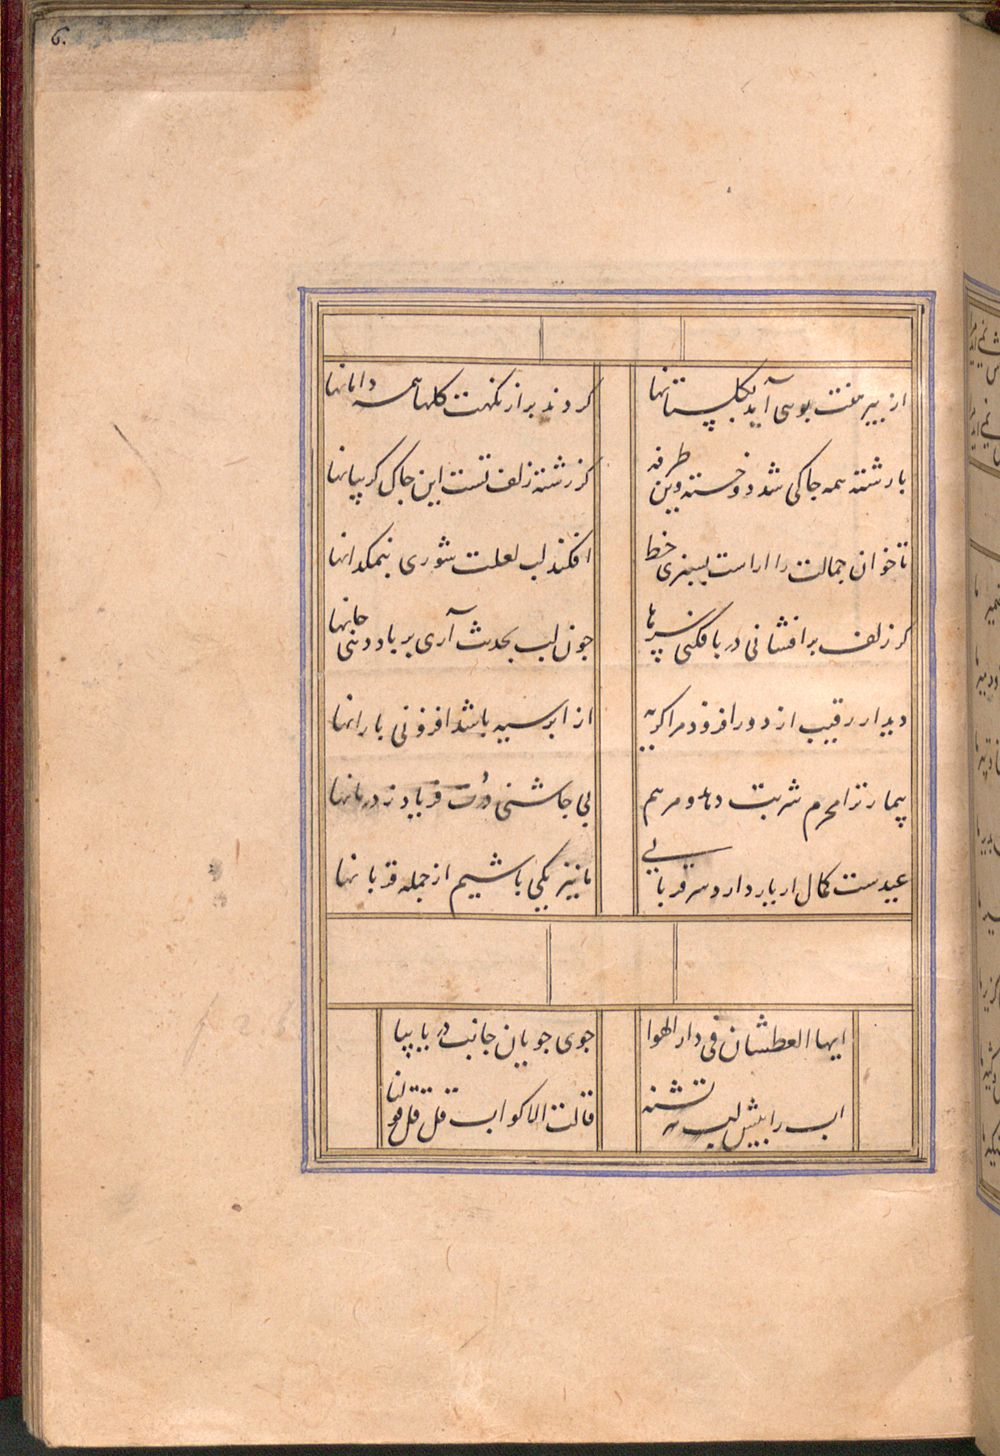 6.
از پیرهنت بوسی آید بکلستانها
کردند پر از نکهت کلها همه دامانها
با رشته همه جاکی شد دوخته وین طرفه
کز رشته زلف تست این جاک کریبانها
تا خوان جمالت را اراست بسبزی خط
افکند لب لعلت شوری بنمکدانها
کر زلف برافشانی در پا فکنی سرها
جون لب بحدیث آری بر باد دهی جانها
دیدار رقیب از دور افزود مرا کریه
از ابر سیه باشد افزونی بارانها
بیمار ترا محرم شربت دهد و مرهم
بی جاشنی دردت فریاد ز درمانها
عیدست کمال ار یار دارد سر قربانی
ما نیز یکی باشیم از جمله قربانها
ایها العطشان فی دار الهوا
جوی جویان جانب دریا بیا
اب را بیش لب تشنه
قالت الاکواب قل قل